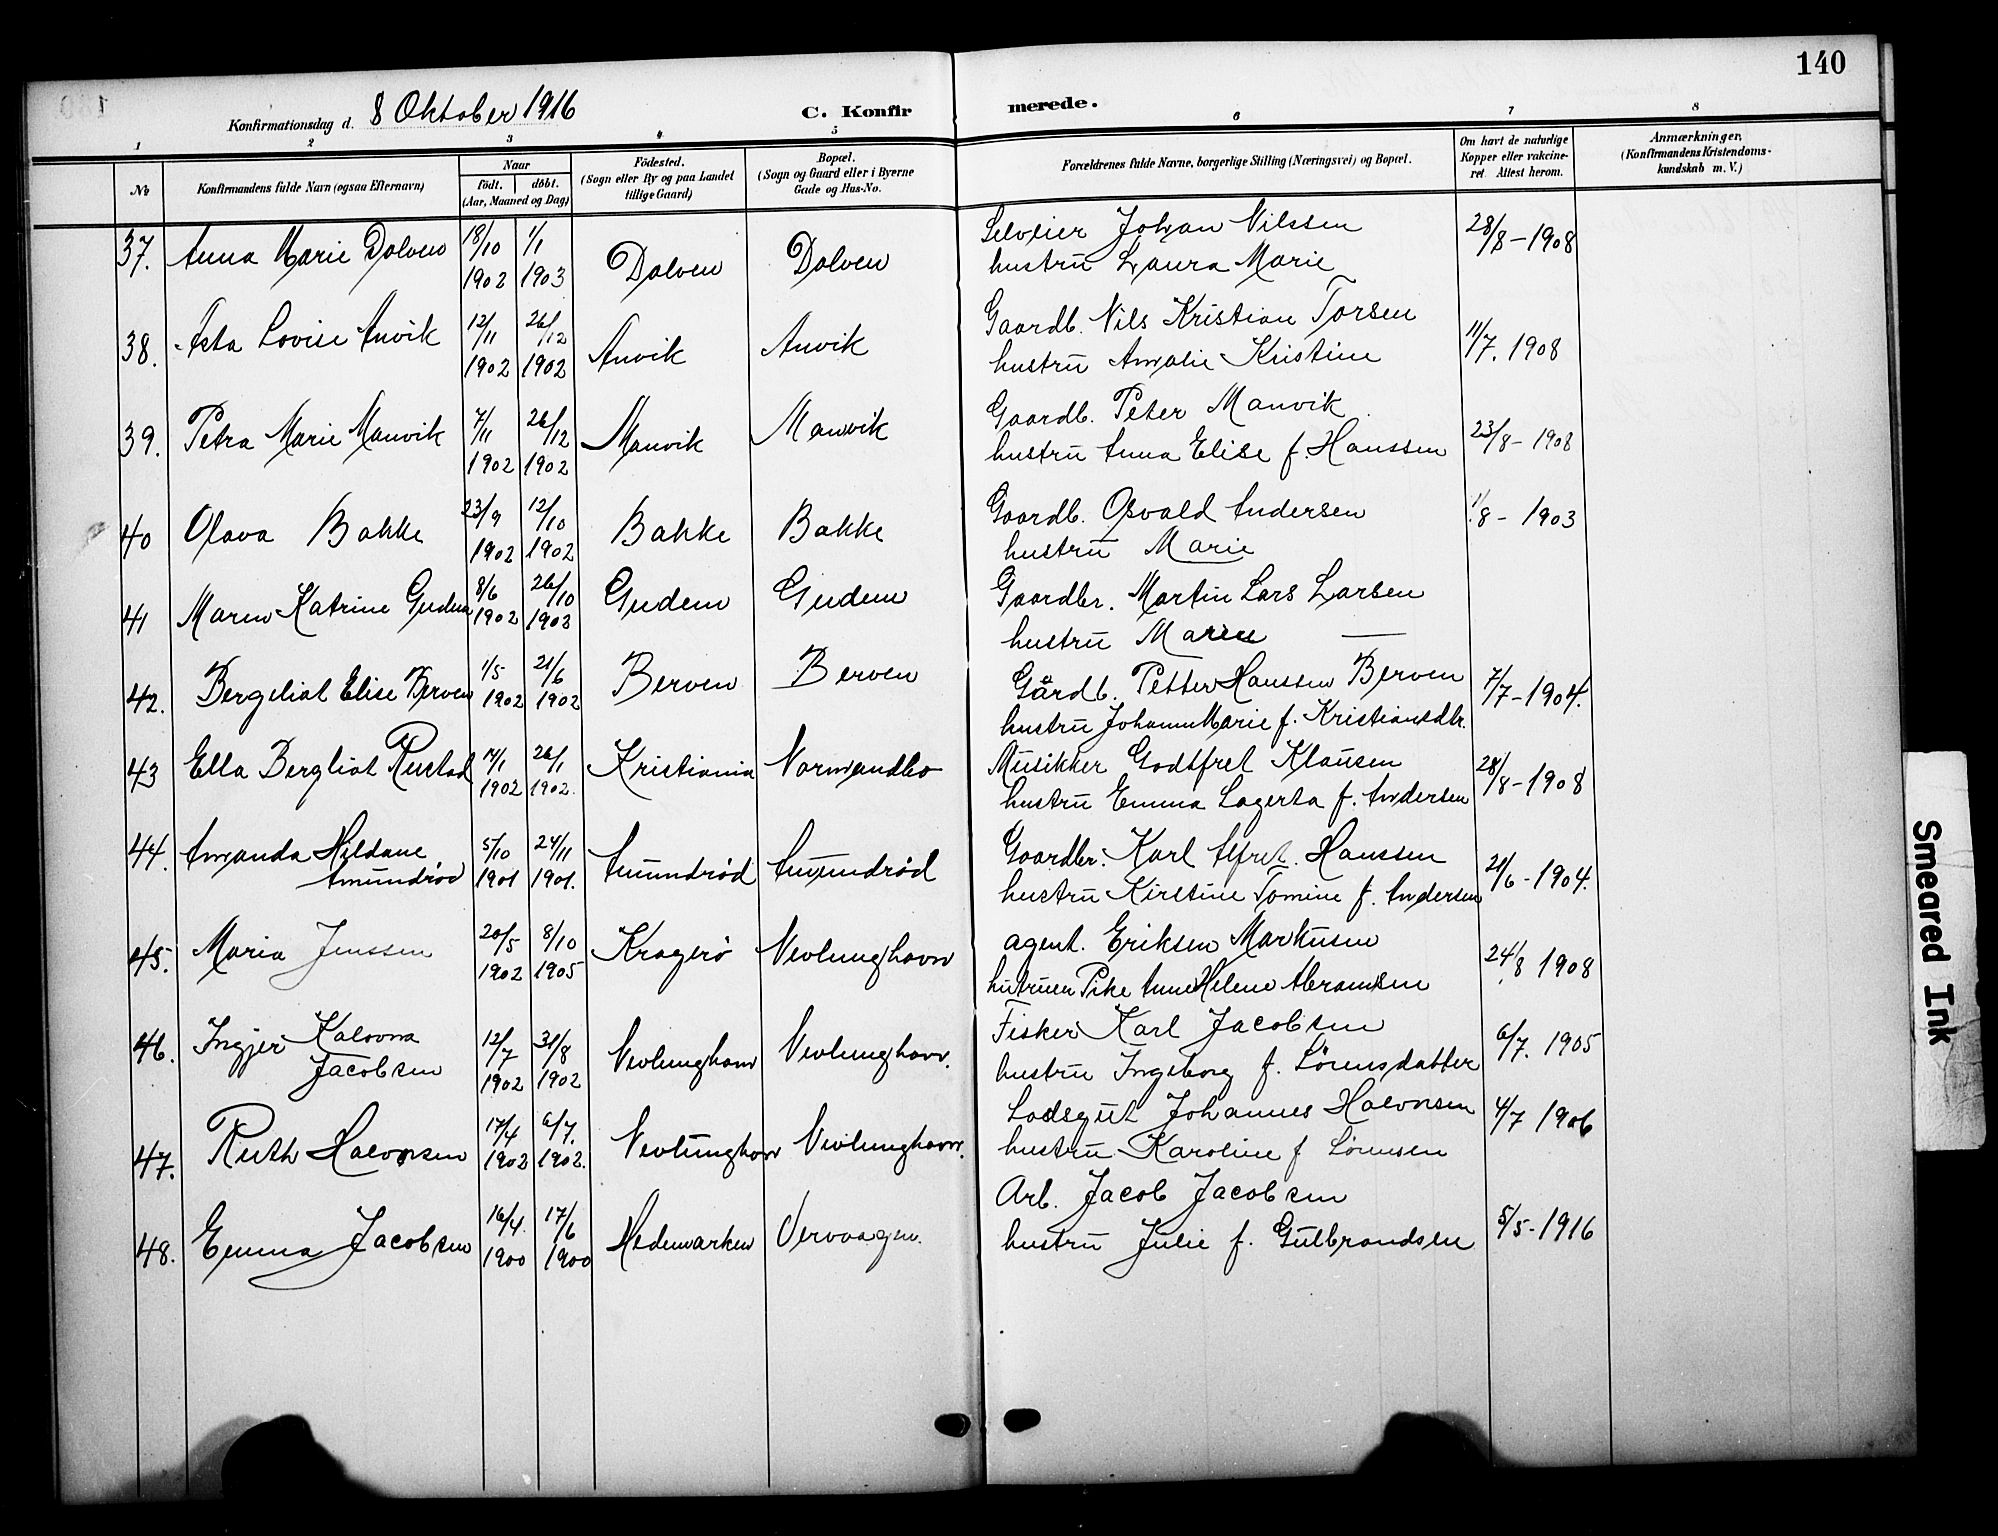 140
Konfirmationsdag d. 8 Oktober 1916 C. Konfirmerede.
1 2 3 4 5 6 7 8
No
Konfirmandens fulde Navn (ogsaa Efternavn)
Naar
födt. döbt.
(Aar, Maaned og Dag)
Födested.
(Sogn eller By og paa Landet
tillige Gaard)
Bopæl.
(Sogn og Gaard eller i Byerne
Gade og Hus-No.
Forældrenes fulde Navne, borgerlige Stilling (Næringsvei) og Bopæl.
Om havt de naturlige
Kopper eller vakcine-
ret Attest herom.
Anmærkninger,
(Konfirmandens Kristendoms-
kundskab m. V.)
37. Anna Marie Dolven 18/10 1/1 Selveier Johan Nilssen 28/8-1908
1902 1903 Dolven Dolven hustru Laura Marie
38. Asta Lovise Anvik 12/11 26/12 Gaardb. Nils Kristian Torsen 11/7. 1908
1902 1902 Anvik Anvik hustru Amalie Kristine
39. Petra Marie Manvik 7/11 26/12 Manvik Manvik Gaardb. Peter Manvik
1902 1902 hustru Anna Elise f. Hanssen 23/8-1908
40 Olava Bakke 23/9 12/10 Bakke Bakke Gaardb. Osvald Andersen 1/8-1903
1902 1902 hustru Marie
41 Maren Katrine Gudem 8/6 26/10 Gudem Gudem Gaardbr. Martin Lars Larsen
1902 1902 hustru Maren —
42. Bergeliot Elise Berven 1/5 21/6 Berven Berven Gårdb. Petter Hanssen Berven 7/7-1904.
1902 1902 hustru Johanne Marie f. Kristiansdtr.
43 Ella Bergliot Rustad 14/1 26/1 Kristiania Normandbo Musikker Godtfret Klausen 28/8-1908
1902 1902. hustru Emma Lagerta f. Andersen
44. Amanda Hildane 5/10 24/11 Gaardbr. Karl Alfret. Hanssen
Amundrød 1901 1901. Amundrød Amundrød hustru Kirstine Tomine f. Andersen 21/6-1904.
45. Maria Jenssen 20/5 8/10 Kragerö Nevlunghavn agent. Eriksen Markusen 24/8 1908
1902 1905 hutruen Pike Anne Helene Abramsen
46. Ingjer Kalovna 12/7 31/8 Nevlunghavn Nevlunghavn. Fisker Karl Jacobsen 6/7. 1905
Jacobsen 1902 1902 hustru Ingeborg f. Lörensdatter
47. Ruth Halvorsen 17/4 6/7. Nevlunghavn Nevlunghavn. Lodsgut Johannes Halvorsen 4/7 1906
1902 1902. hustru Karoline f Lörensen
48. Emma Jacobsen 16/4. 17/6 Hedemarken Vervaagen. Arb. Jacob Jacobsen
1900 1900 hustru Julie f. Gulbrandsen 5/5-1916
Smeared Ink